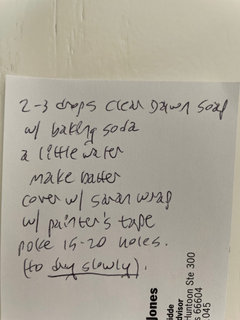 2-3 drops clear Dawn soap
w/ baking soda
a little water
make batter
cover w/ saran wrap
w/ painter's tape
poke 15-20 holes.
(to dry slowly).
Jones
dvisor
Huntoon Ste 300
s 66604
045